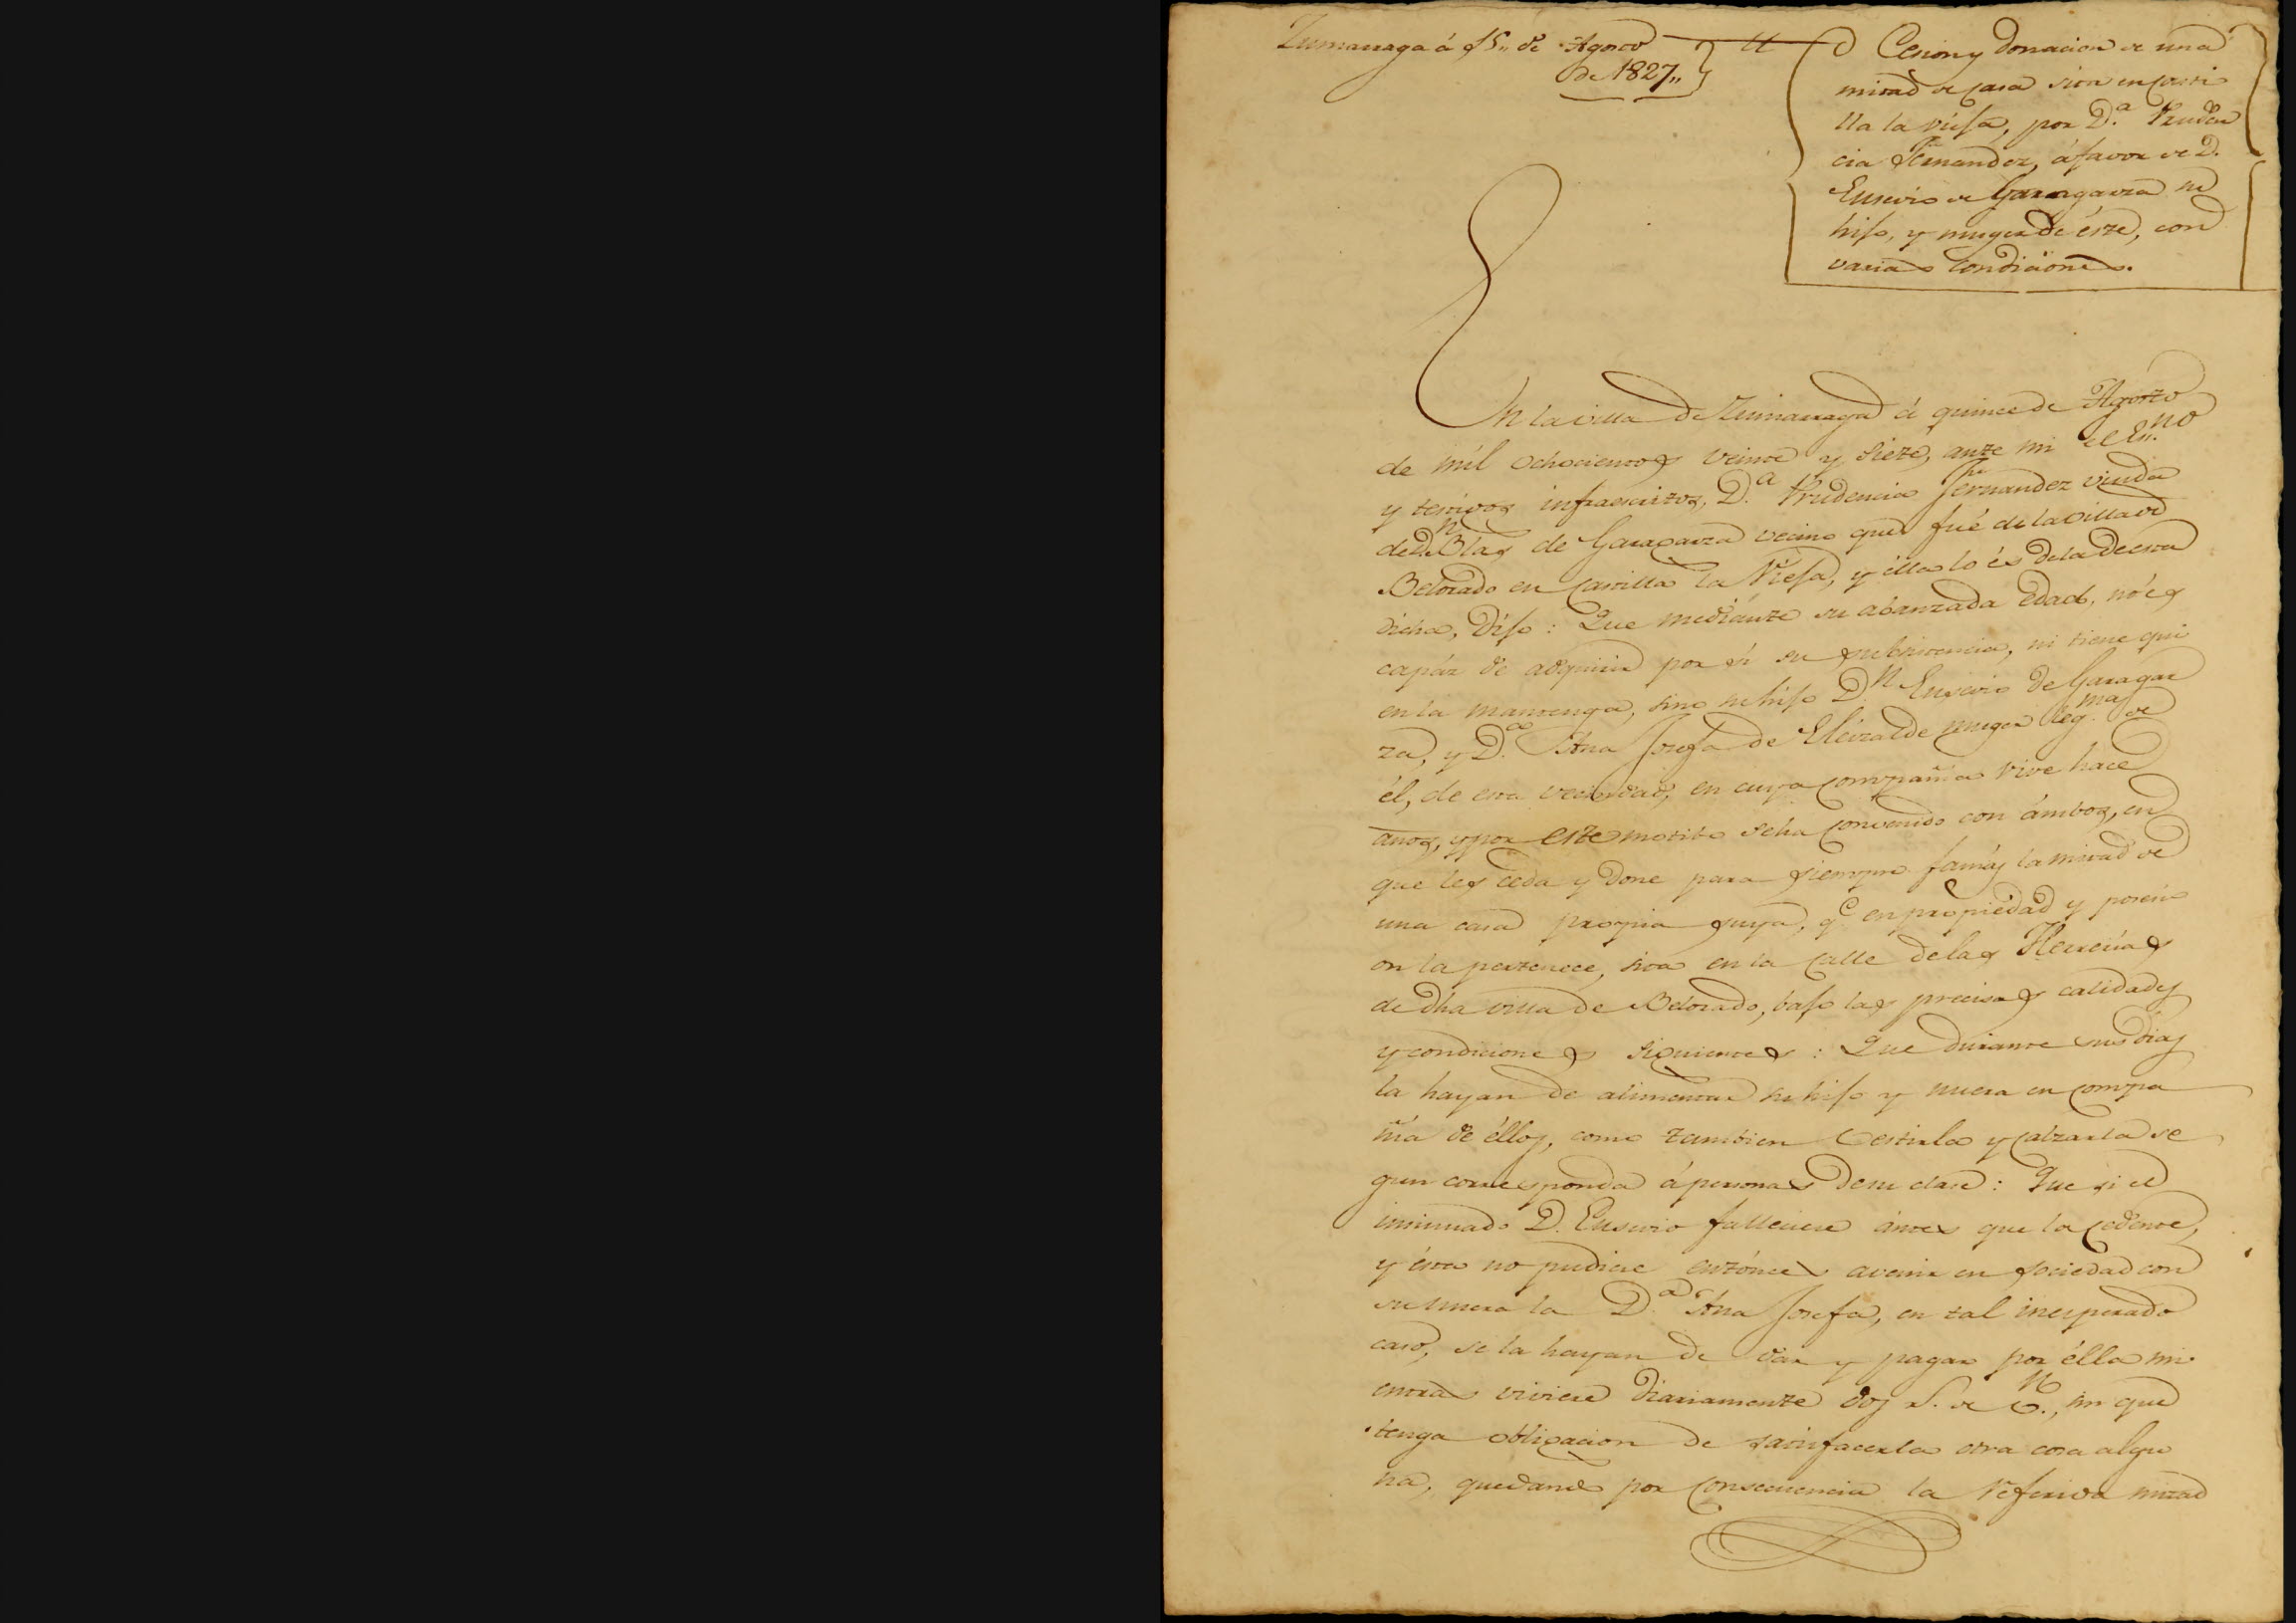 Zumarraga á 15,, de Agosto
de 1827,,
Cesion y donacion de una
mitad de casa sita en Casti
lla la Viefa, por D.ª Pruden
cia Fernandez, á favor de D.
Eusevio de Garagarza su
hifo, y muger de éste, con
varias condiciones.
En la villa de Zumarraga á quince de Agosto
de mil ochocientos veinte y siete, ante mi el Es.no
y testigos infraescritos, D.ª Prudencia Fernandez viuda
de Dn Blas de Garagarza vecino que fué de la villa de
Belorado en Castilla la Viefa, y ella lo és de la de esta
dicha, Difo: Que mediante su abanzada edad, nó es
capáz de adquirir por sí su subsistencia, ni tiene qui
en la mantenga, sino su hifo Dn Eusevio de Garagar
za, y D.ª Ana Josefa de Elizalde muger leg.ma de
él, de esta vecindad, en cuya compañia vive hace
años, y por este motibo se ha convenido con ámbos, en
que les ceda y done para siempre famás la mitad de
una casa propia suya, qe en propiedad y posesi
on la pertenece, sita en la calle de las Herrerias
de dha villa de Belorado, bafo las precisas calidades
y condiciones siguientes: Que durante sus dias
la hayan de alimentar su hifo y nuera en compa
ñia de éllos, como tambien vestirla y calzarla se
gun corresponda á personas de su clase: Que si el
insinuado D. Eusevio falleciere ántes que la cedente,
y ésta no pudiere entónces avenir en sociedad con
su nuera la D.ª Ana Josefa, en tal inesperado
caso, se la hayan de dar y pagar por élla mi
entras viviere diariamente dos r.s de Vn., sin que
tenga obligacion de satisfacerla otra cosa algu
na, quedando por consecuencia la referida mitad